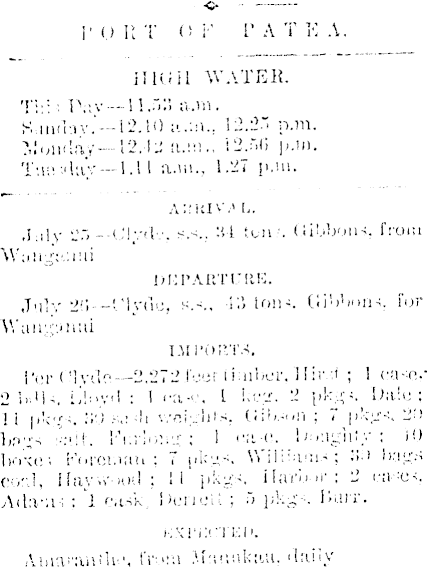 PORT OF PATEA.
HIGH WATER.
This Day—11.53 a.m.
Sunday,—12.10 a.m., 12.25 p.m.
Monday—12.42 a.m., 12.56 p.m.
Tuesday—1.11 a.m., 1.27 p.m.
ARRIVAL.
July 25—Clyde, s.s., 34 tons, Gibbons, from
Wanganui
DEPARTURE.
July 26—Clyde, s.s., 43 tons, Gibbons, for
Wanganui
IMPORTS.
Per Clyde—2,272 feet timber, Hirst ; 1 case,
2 bdls, Lloyd ; 1 case, 1 keg, 2 pkgs, Dale ;
11 pkgs, 30 sash weights, Gibson ; 7 pkgs, 20
bags salt, Furlong ; 1 case, Doughty ; 10
boxes Foreman ; 7 pkgs, Williams ; 30 bags
coal, Haywood ; 11 pkgs, Harbor ; 2 cases,
Adams ; 1 cask, Derrett ; 5 pkgs, Barr.
EXPECTED.
Amaranthe, from Manukau, daily